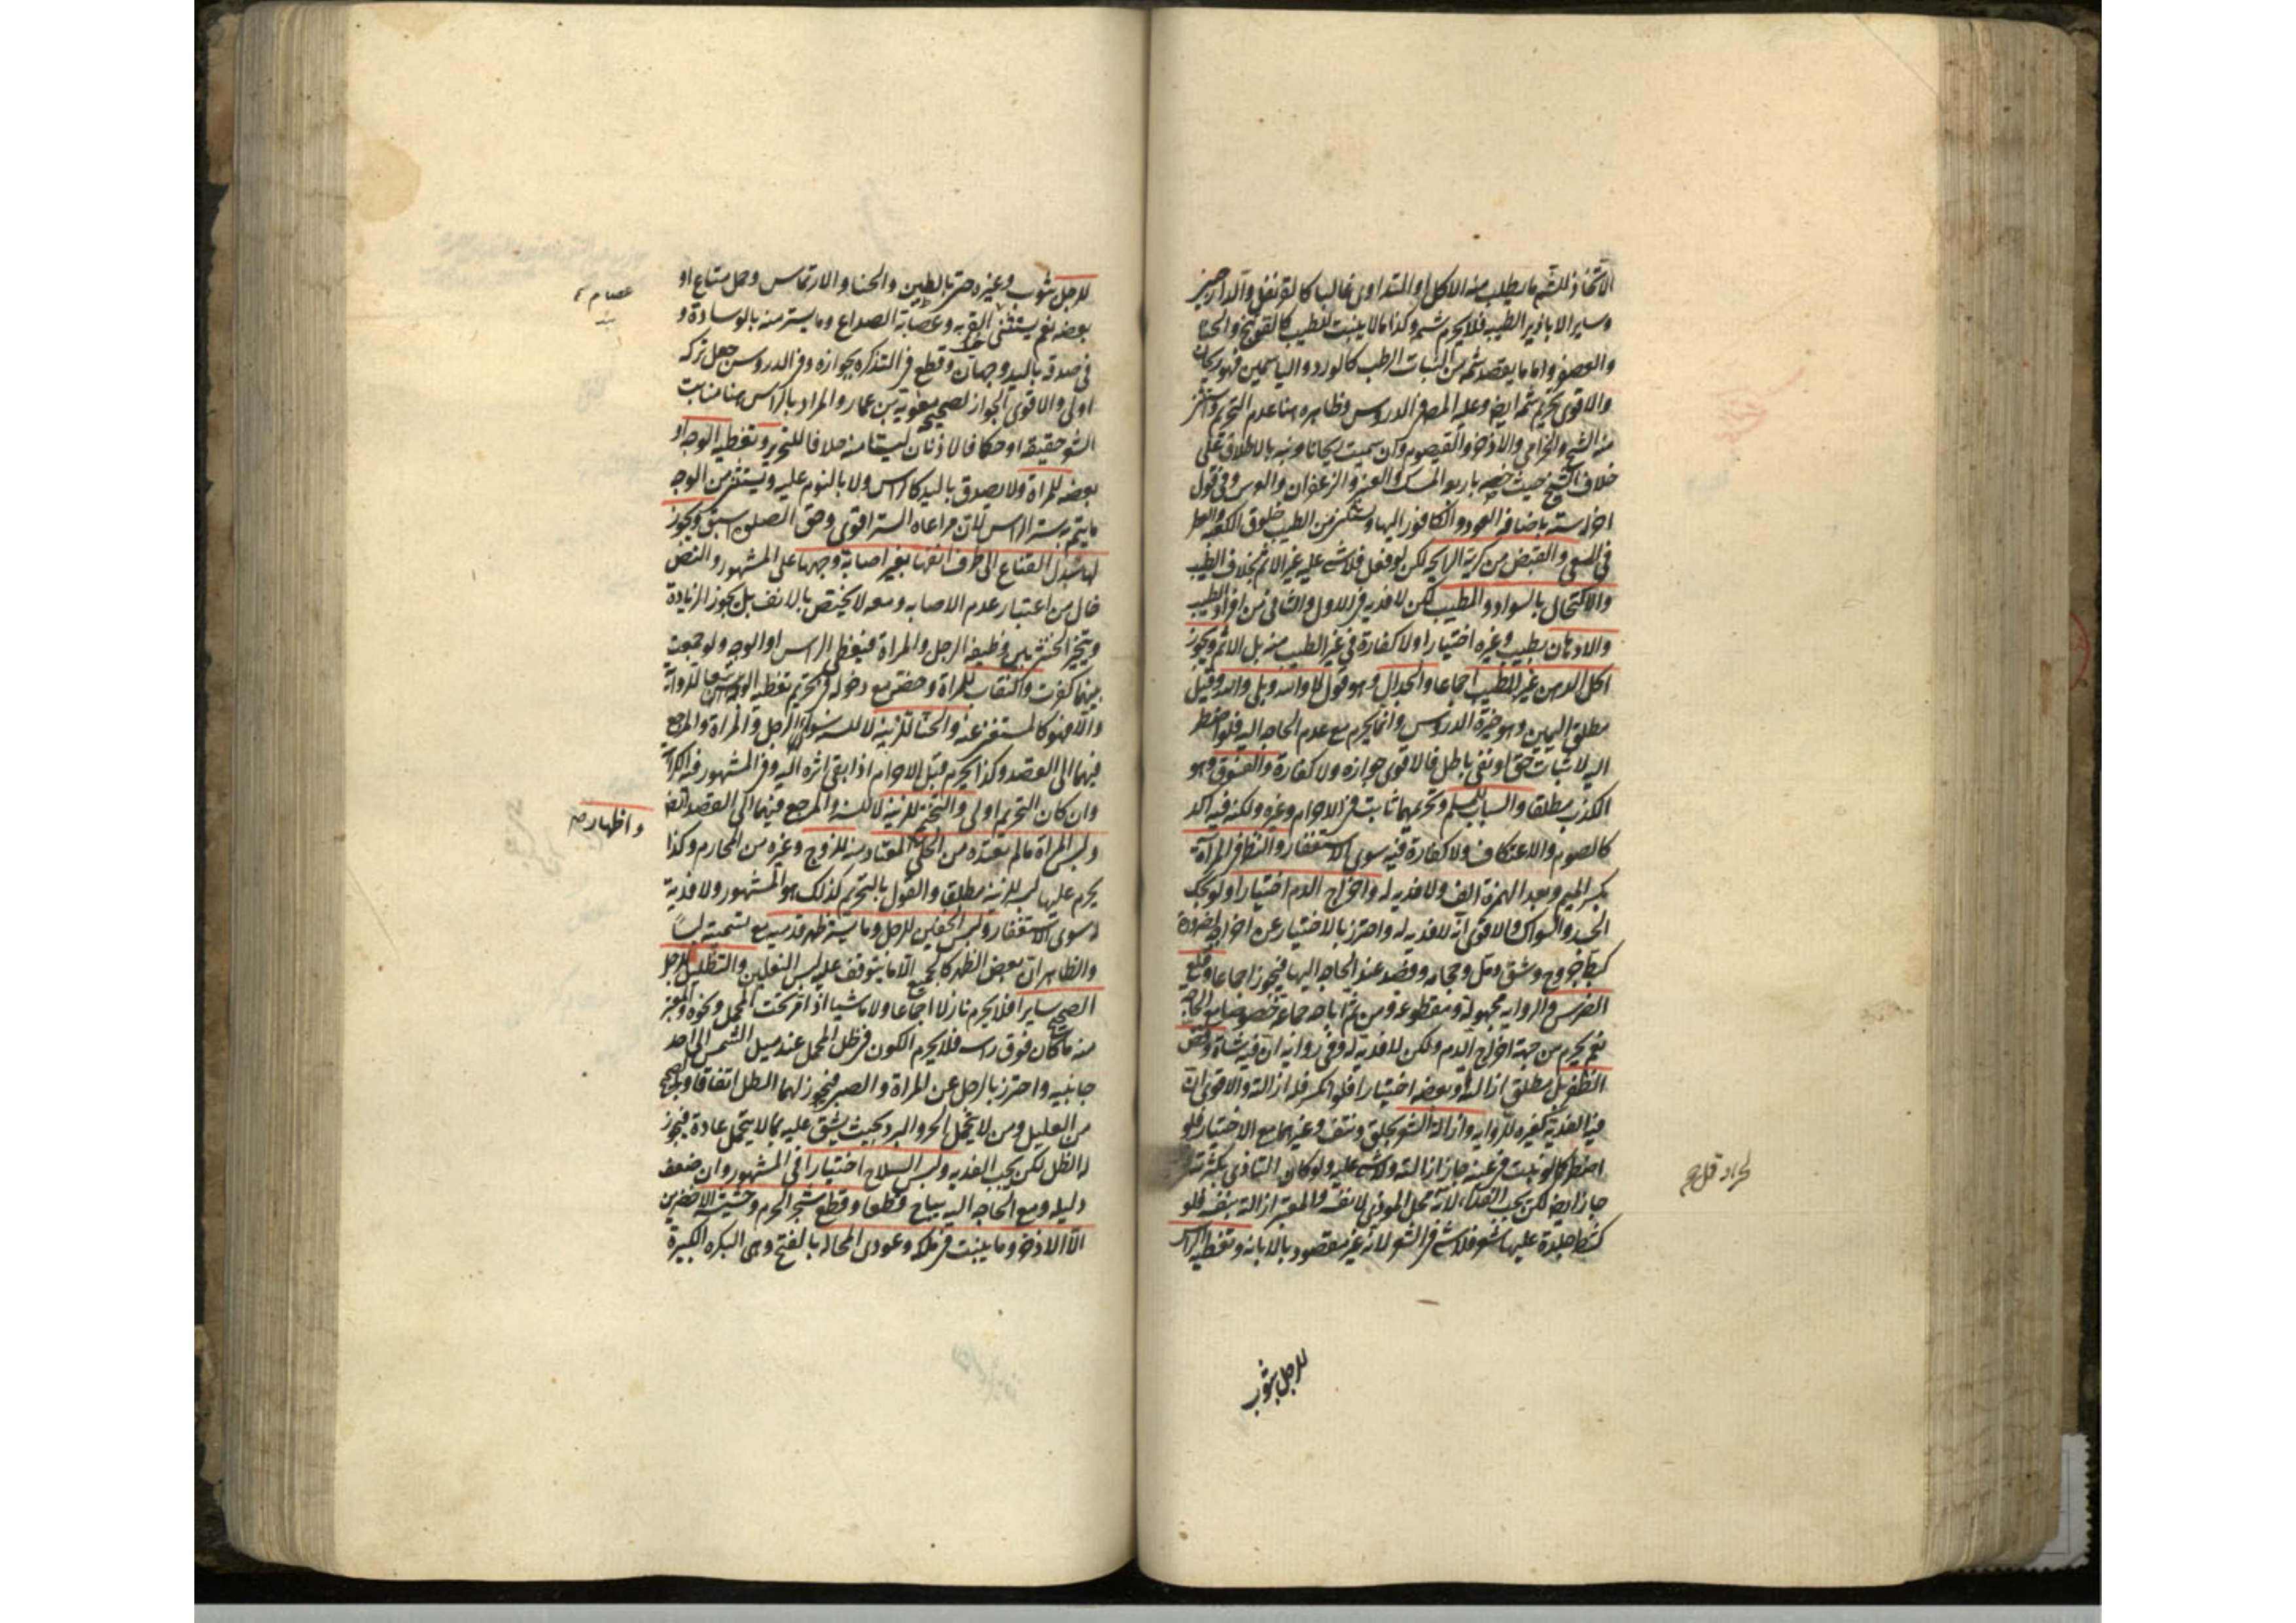 الاتخاذ للشم ما يطلب منه الاكل او التداوى غالبا كالقرنفل والدارصينى
وساير الابازير الطيبه فلا يحرم شمه وكذا ما لا ينبت للطيب كالفوتنج والحنا
والعصفر واما ما يقصد شمه من النبات الرطب كالورد والياسمين فهو ريحان
والاقوى تحريم شمه ايضا وعليه المصر فى الدروس وظاهره هنا عدم التحريم واستثنى
منه الشيح والخزامى والاذخر والقيصوم وان سميت ريحانا ونبه بالاطلاق على
خلاف الشيخ حيث خصه باربع المسك والعنبر والزعفران والورس وفى قول
اخر له ستة باضافه العود والكافور اليها ويستثنى من الطيب خلوق الكعبه والعطر
فى المسعى والقبض من كريه الرايحه لكن لو فعل فلا شى عليه غير الاثم بخلاف الطيب
والاكتحال بالسواد والمطيب لكن لا فديه فى الاول والثانى من افراد الطيب
والادهان بطيب وغيره اختيارا ولا كفارة فى غير الطيب منه بل الاثم ويجوز
اكل الدهن غير المطيب اجماعا والجدال وهو قول لا والله وبلى والله وقيل
مطلق اليمين وهو خيرة الدروس وانما يحرم مع عدم الحاجه اليه فلو اضطر
اليه لاثبات حق او نفى باطل فالاقوى جوازه ولا كفارة والفسوق وهو
الكذب مطلقا والسباب للمسلم وتحريمهما ثابت فى الاحرام وغيره ولكنه فيه اكد
كالصوم والاعتكاف ولا كفارة فيه سوى الاستغفار والنظر فى المرآة
بكسر الميم وبعد الهمزة الف ولا فديه له واخراج الدم اختيارا ولو بحك
الجسد والسواك والاقوى انه لا فديه له واحترز بالاختيار عن اخراجه لضرورة
كبط جروح وشق دمل وحجامه وفصد عند الحاجه اليها فيجوز اجماعا وقلع
الضرس والروايه مجهولة ومقطوعه ومن ثم اباحه جماعة خصوصا مع الحاجه
نعم يحرم من جهة اخراج الدم ولكن لا فديه له وفى روايه ان فيه شاة وقص
الظفر بل مطلق ازالته او بعضه اختيارا فلو انكسر فله ازالته والاقوى ان
فيه الفدية كغيره للروايه وازالة الشعر بحلق ونتف وغيرهما مع الاختيار فلو
اضطر كما لو نبت فى عينه جاز ازالته ولا شى عليه ولو كان التاذى بكثرته
جاز ايضا لكن يجب الفداء لانه محل الموذى لا نفسه والمعتبر ازالته بنفسه فلو
كشط جلدة عليها شعر فلا شى فى الشعر لانه غير مقصود بالابانه وتغطيه الراس
للرجل بثوب
للرجل بثوب وغيره حتى بالطين والحنا والارتماس وحمل متاع او
بعضه نعم يستثنى القربه وعصابة الصداع وما يستر منه بالوسادة و
فى صدقه باليد وجهان وقطع فى التذكره بجوازه وفى الدروس جعل تركه
اولى والاقوى الجواز لصحيحة معوية بن عمار والمراد بالراس هنا منابت
الشعر حقيقة او حكما فالاذنان ليستا منه خلافا للتحرير وتغطيه الوجه او
بعضه للمراة ولا يصدق باليد كالراس ولا بالنوم عليه ويستثنى من الوجه
ما يتم به ستر الراس لان مراعاه الستر اقوى وحق الصلوة اسبق ويجوز
لها سدل القناع الى طرف انفها بغير اصابة وجهها على المشهور والنص
خال من اعتبار عدم الاصابه ومعه لا يختص بالانف بل يجوز الزيادة
ويتخير الخنثى بين وظيفه الرجل والمراة فيغطى الراس او الوجه ولو جمعت
بينهما كفرت والنقاب للمراة وخصه مع دخوله فى تحريم تغطيه الوجه تبعا للرواية
والا فهو كالمستغنى عنه والحنا للزينه لا للسنه سواء الرجل والمراة والمرجع
فيهما الى القصد وكذا يحرم قبل الاحرام اذا بقى اثره اليه والمشهور فيه الكراهة
وان كان التحريم اولى والتختم للزينه لا للسنه والمرجع فيهما الى القصد ايضا
ولبس المراة ما لم تعتده من الحلى المعتاد منه للزوج وغيره من المحارم وكذا
يحرم عليها لبسه للزينه مطلقا والقول بالتحريم كذلك هو المشهور ولا فدية
له سوى الاستغفار ولبس الخفين للرجل وما يستر ظهر قدميه مع تسميته لبسا
والظاهر ان بعض الظهر كالجميع الا ما يتوقف عليه لبس النعلين والتظليل للرجل
الصحيح سايرا فلا يحرم نازلا اجماعا ولا ماشيا اذا مر تحت المحمل ونحوه والمعتبر
منه ما كان فوق راسه فلا يحرم الكون فى ظل المحمل عند ميل الشمس الى احد
جانبيه واحترز بالرجل عن المراة والصبى فيجوز لهما الظل اتفاقا وبالصحيح
من العليل ومن لا يتحمل الحر والبرد بحيث يشق عليه بما لا يتحمل عادة فيجوز
له الظل لكن يجب الفديه ولبس السلاح اختيارا فى المشهور وان ضعف
دليله ومع الحاجه اليه يباح قطعا وقطع شجر الحرم وحشيشه الاخضرين
الا الاذخر وما ينبت فى ملكه وعودى المحاله بالفتح وهى البكره الكبيرة
واظهاره